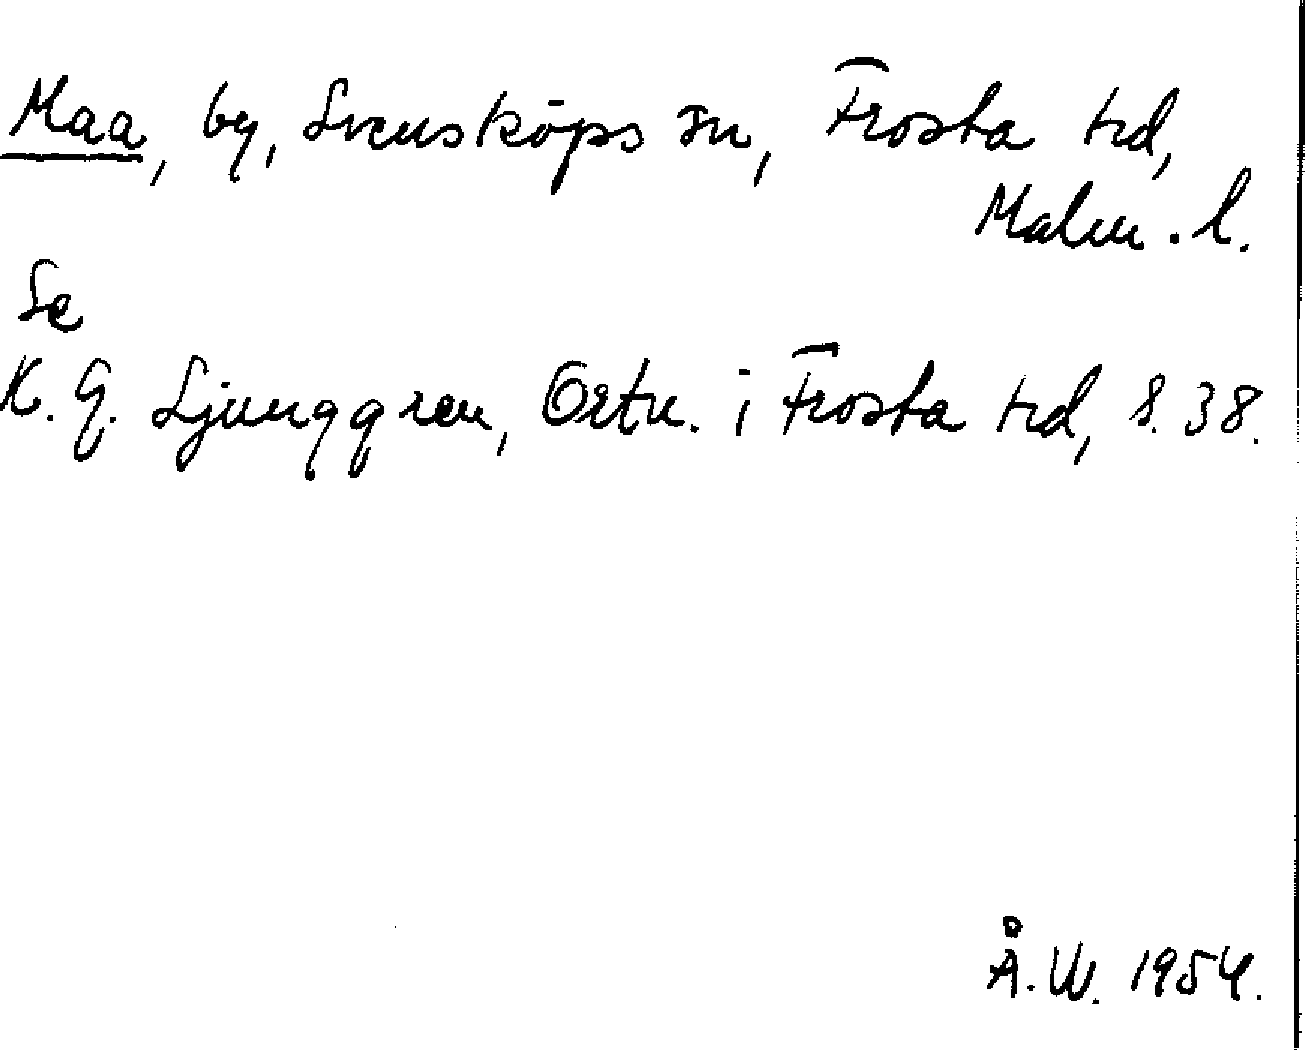 Maa, by, Svensköps sn, Frosta hd,
Malm. l.
Se
K. G. Ljunggren, Ortn. i Frosta hd, s. 38.
Å. W. 1954.